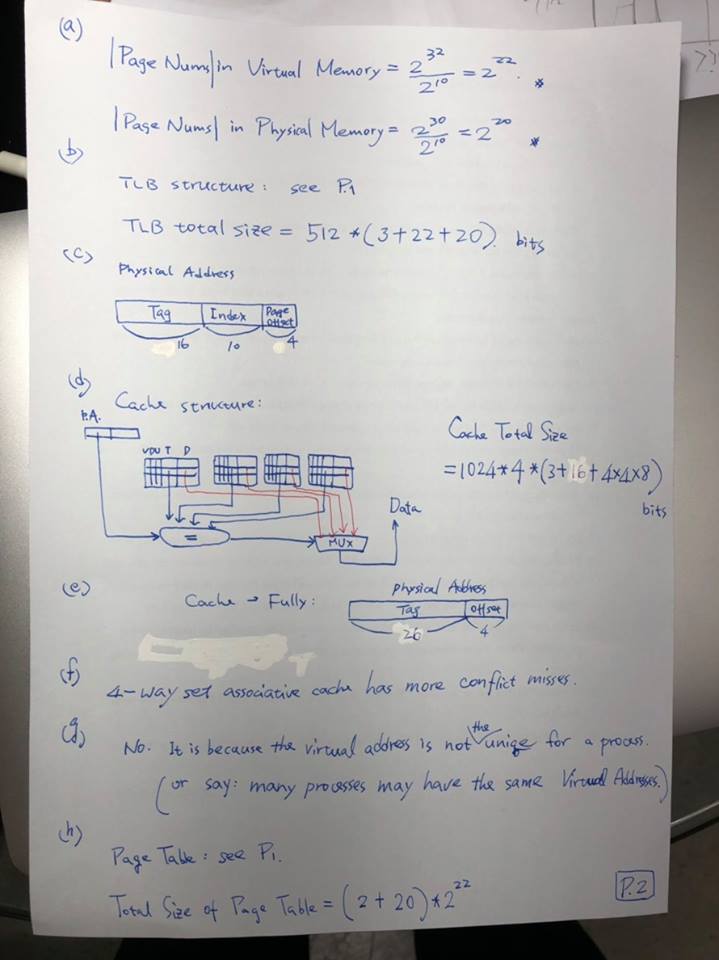 (a)
|Page Nums| in Virtual Memory = 2^32 / 2^10 = 2^22. *
|Page Nums| in Physical Memory = 2^30 / 2^10 = 2^20 *
(b)
TLB structure: see P.1
TLB total size = 512 * (3+22+20). bits
(c)
Physical Address
Tag Index Page offset
16 10 4
(d)
Cache structure:
P.A.
V D U T D
Cache Total Size
=1024*4*(3+16+4x4x8)
bits
Data
=
MUX
(e)
Cache → Fully:
Physical Address
Tag Offset
26 4
(f)
4-way set associative cache has more conflict misses.
(g)
No. It is because the virtual address is not the uniqe for a process.
(or say: many processes may have the same Virtual Addresses.)
(h)
Page Table: see P1.
Total Size of Page Table = (2+20)*2^22
P.2
??